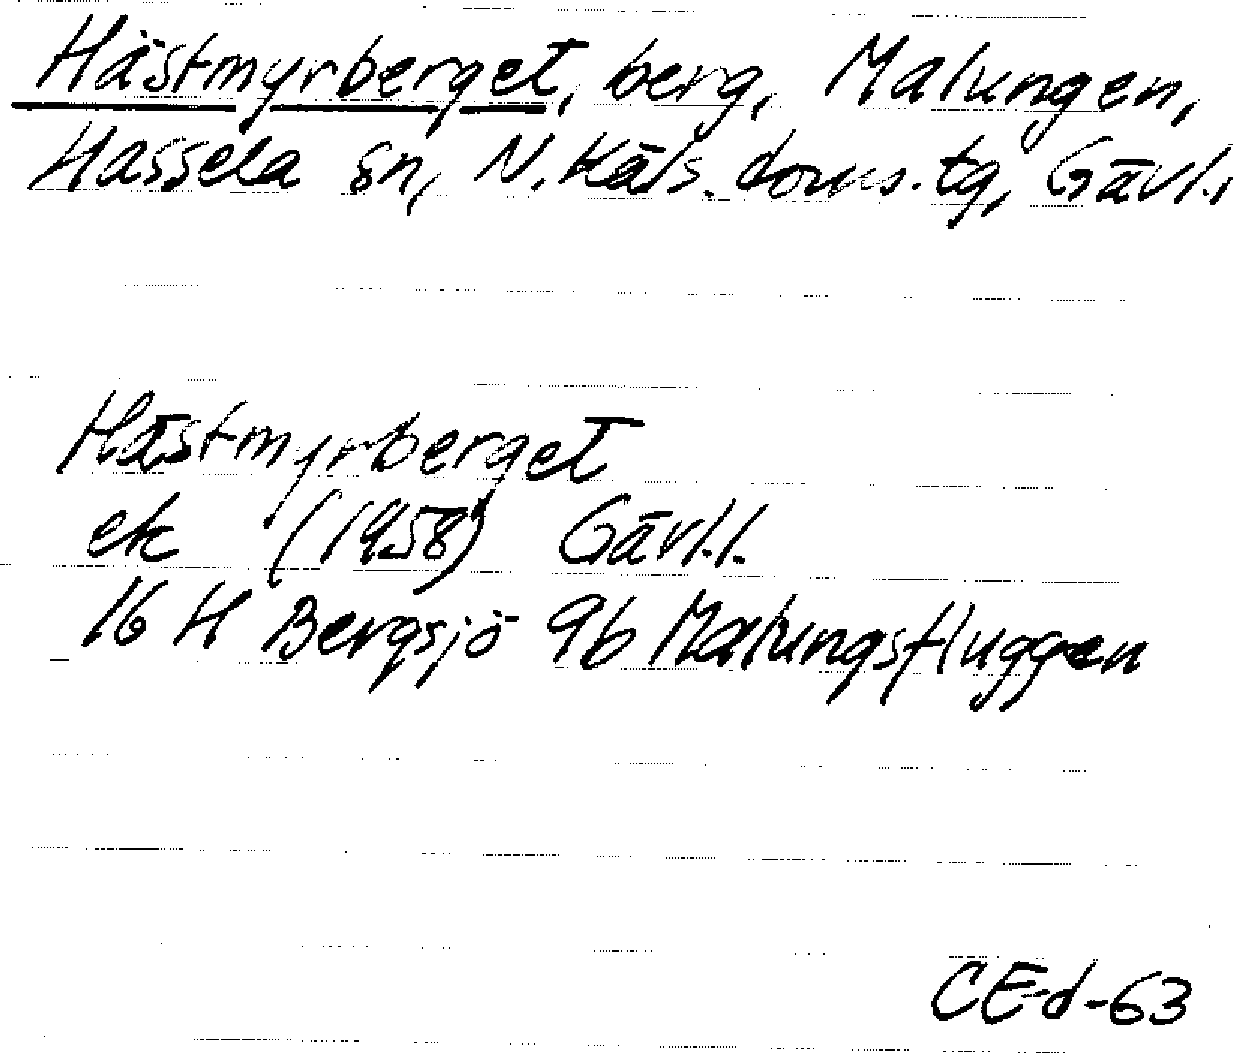 Hästmyrberget, berg, Malungen,
Hassela sn, N. Häls. doms. tg, Gävl.l
Hästmyrberget
ek (1958) Gävl.l.
16 H Bergsjö 9b Malungsfluggen
CEd-63